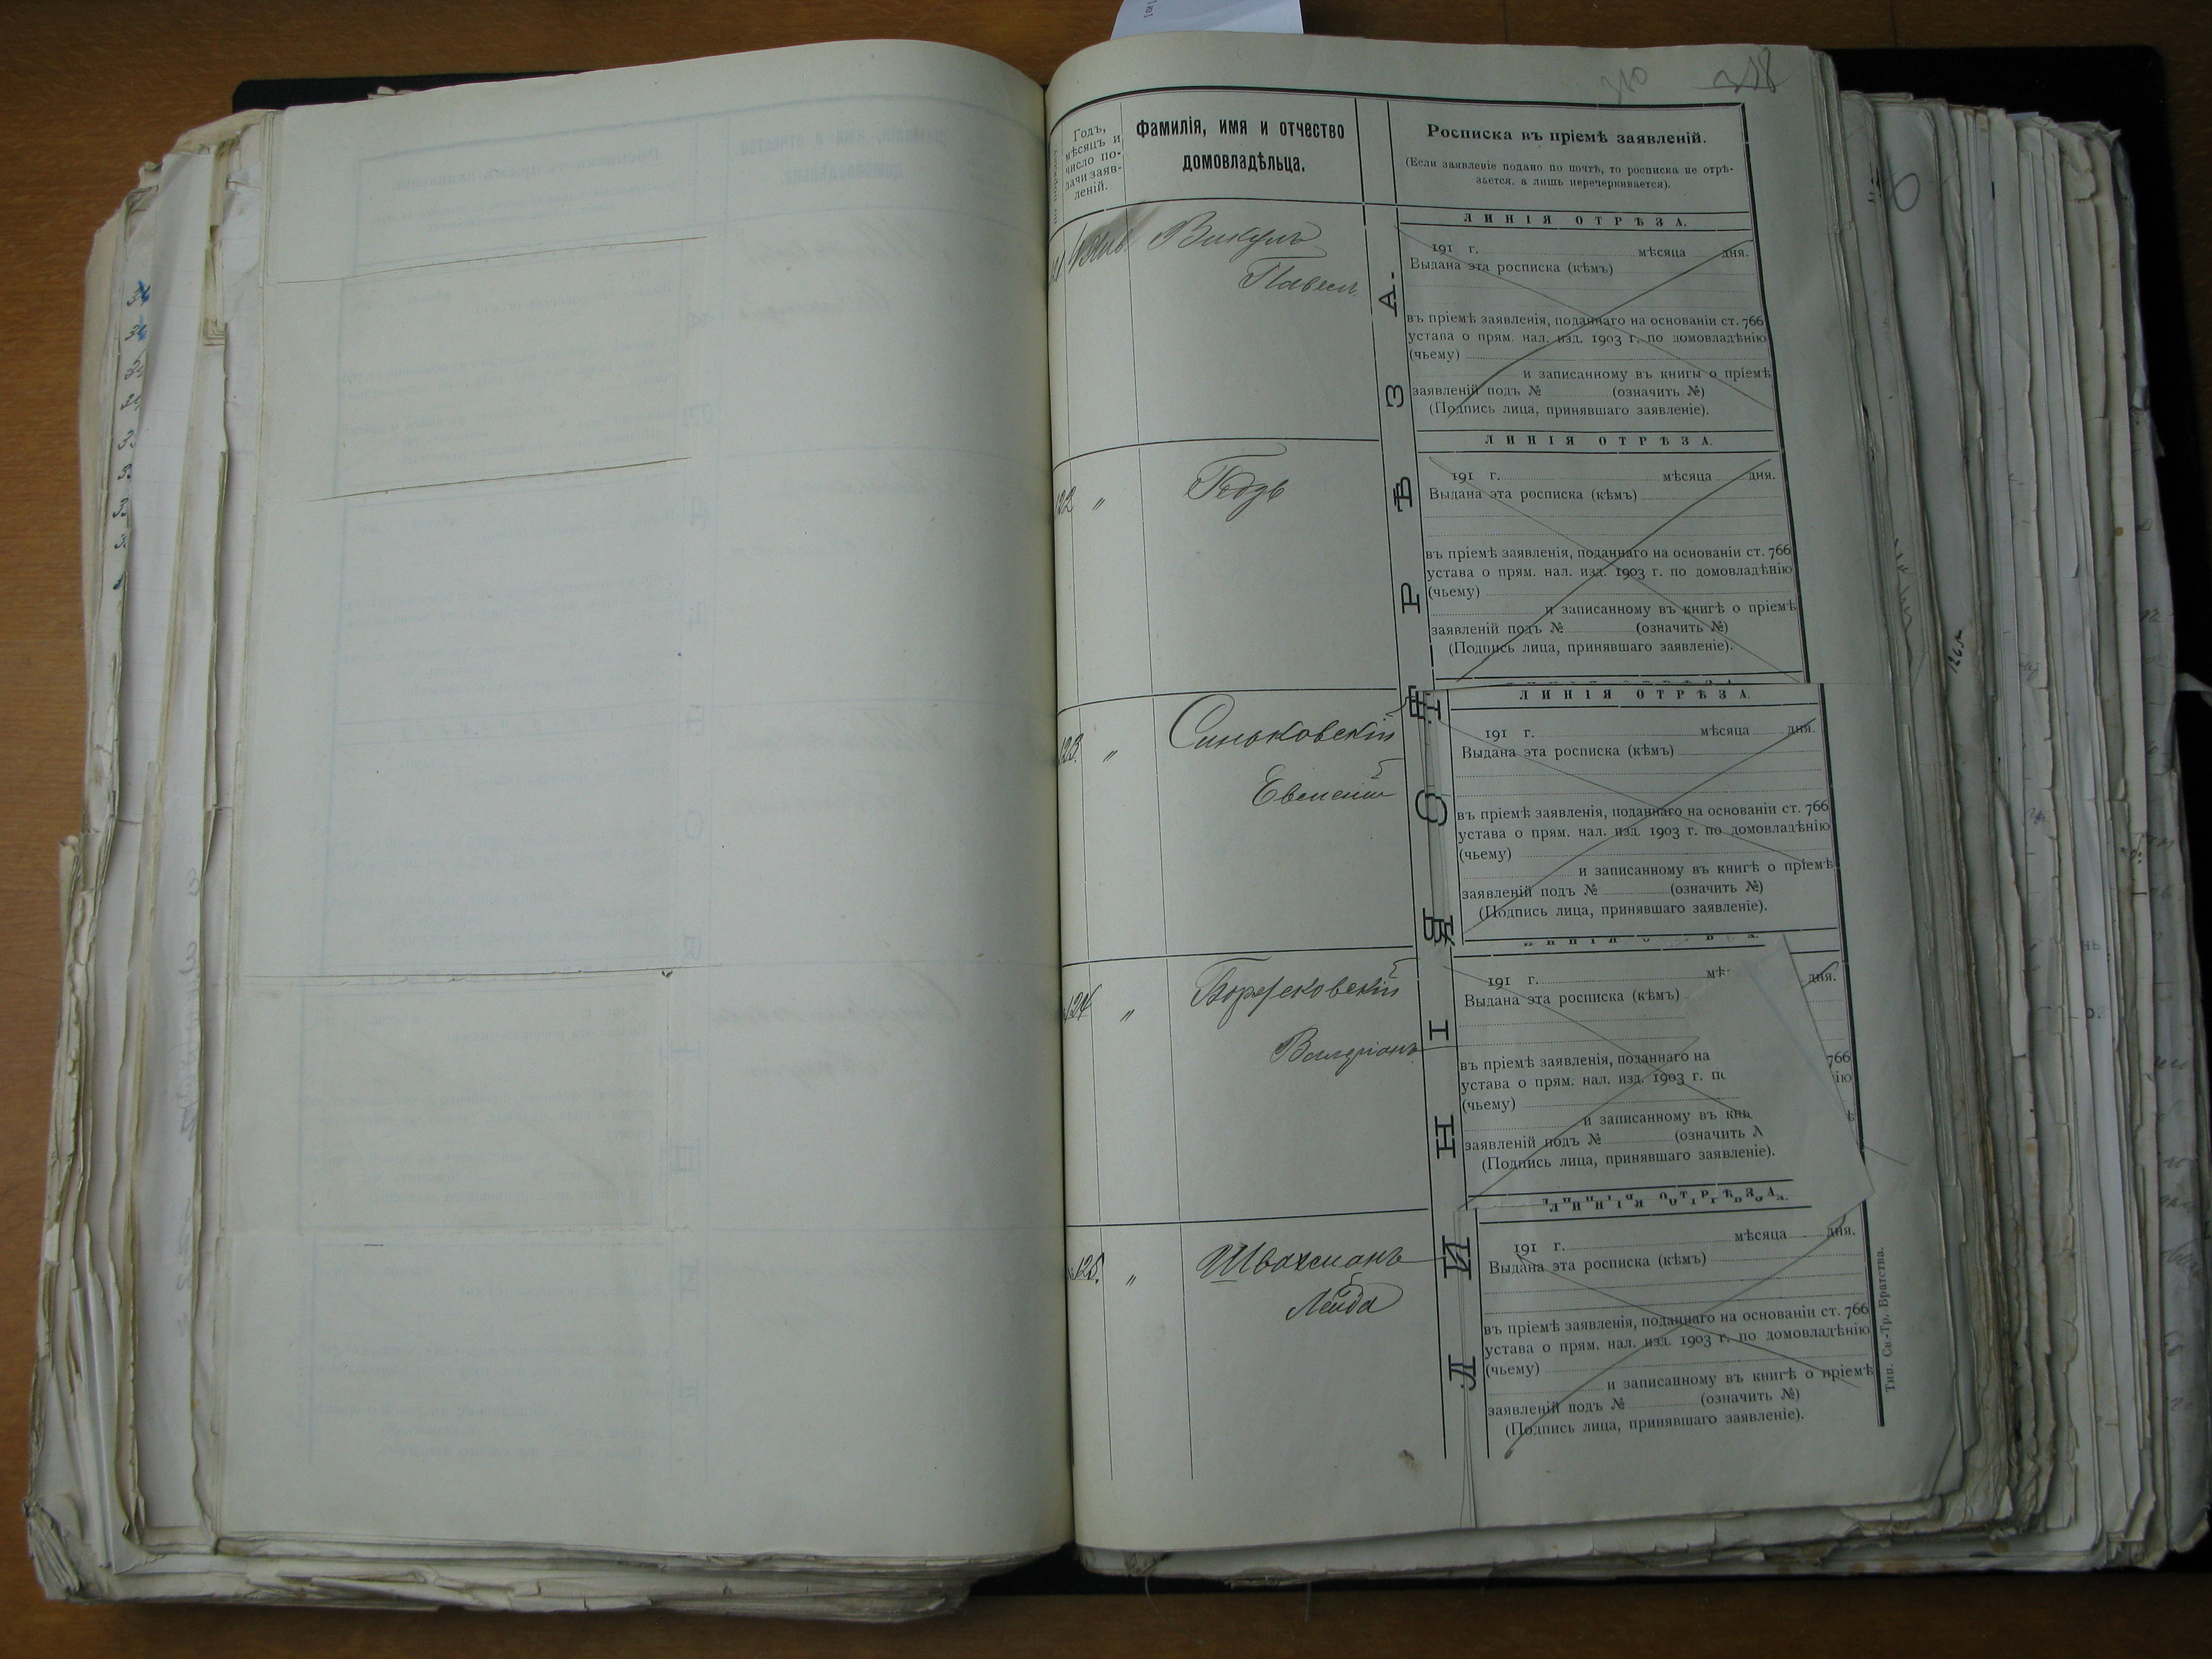 Годъ,
мѣсяцъ и
число по-
дачи заяв-
леній.
Фамилія, имя и отчество
домовладѣльца.
Росписка въ пріемѣ заявленій.
(Если заявленіе подано по почтѣ, то росписка не отрѣ-
зается, а лишь перечеркивается).
ЛИНІЯ ОТРѢЗА.
ЛИНІЯ ОТРѢЗА.
Викулъ
Павелъ
191 г. мѣсяца дня.
Выдана эта росписка (кѣмъ)
въ пріемѣ заявленія, поданнаго на основаніи ст. 766
устава о прям. нал. изд. 1903 г. по домовладѣнію
(чьему)
и записанному въ книгы о пріемѣ
заявленій подъ № (означить №)
(Подпись лица, принявшаго заявленіе).
ЛИНІЯ ОТРѢЗА.
122 "
191 г. мѣсяца дня.
Выдана эта росписка (кѣмъ)
въ пріемѣ заявленія, поданнаго на основаніи ст. 766
устава о прям. нал. изд. 1903 г. по домовладѣнію
(чьему)
и записанному въ книгѣ о пріемѣ
заявленій подъ № (означить №)
(Подпись лица, принявшаго заявленіе).
ЛИНІЯ ОТРѢЗА.
123. " Синьковскій
Евгеній
191 г. мѣсяца дня.
Выдана эта росписка (кѣмъ)
въ пріемѣ заявленія, поданнаго на основаніи ст. 766
устава о прям. нал. изд. 1903 г. по домовладѣнію
(чьему)
и записанному въ книгѣ о пріемѣ
заявленій подъ № (означить №)
(Подпись лица, принявшаго заявленіе).
124 "
191 г. мѣ дня.
Выдана эта росписка (кѣмъ)
въ пріемѣ заявленія, поданнаго на 766
устава о прям. нал. изд. 1903 г. ію
(чьему)
и записанному въ
заявленій подъ № (означить
(Подпись лица, принявшаго заявленіе).
ЛИНІЯ ОТРѢЗА.
125. " Швахманъ
Лейба
191 г. мѣсяца дня.
Выдана эта росписка (кѣмъ)
въ пріемѣ заявленія, поданнаго на основаніи ст. 766
устава о прям. нал. изд. 1903 г. по домовладѣнію
(чьему)
и записанному въ книгѣ о пріемѣ
заявленій подъ № (означить №)
(Подпись лица, принявшаго заявленіе).
Тип. Св.-Тр. Братства.